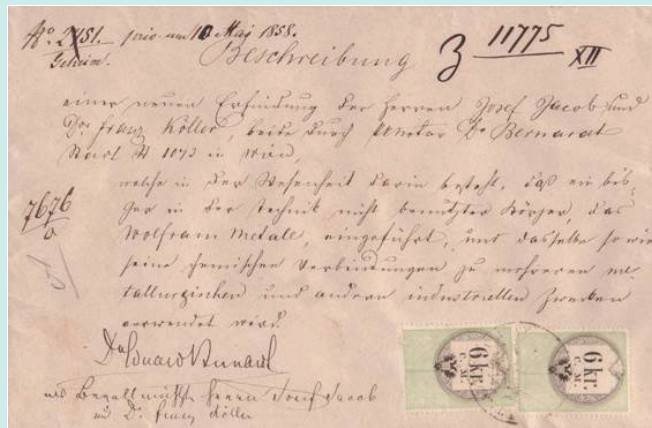 No 2451. priv. am 10 Mai 1858.
Geheim.
Beschreibung
3 11775 XII
einer neuen Erfindung der Herren Josef Jacob und
Dr Franz Köller, beide durch Notar Dr Bernard
Stadt No 1073 in Wien,
welche in der Wesenheit darin besteht, daß ein bis-
her in der Technik nicht benützter Körper, das
Wolfram Metall, eingeführt, und dasselbe so wie
seine chemischen Verbindungen zu mehreren me-
tallurgischen und andern industriellen Zwecken
verwendet wird.
7676
Dr Eduard
als Bevollmächt. Herrn Josef Jacob
und Dr Franz Köller
6 kr. C. M.
6 kr. C. M.